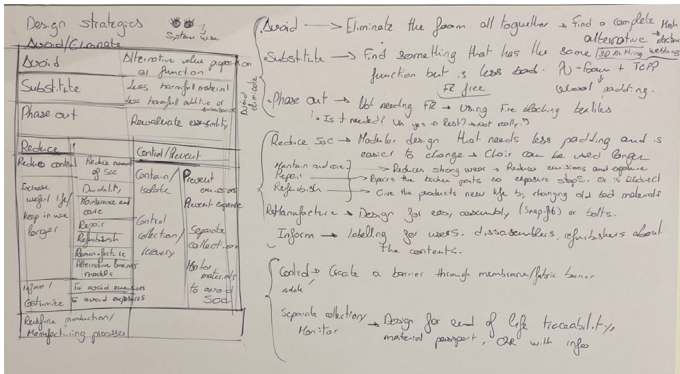 Design strategies
System level
Avoid/Eliminate
Avoid
Alternative value proposition
or function
Substitute
Less harmful material
Less harmful additive or substance
Phase out
Reevaluate essentiality
Avoid
eliminate
Reduce
Control/Prevent
Reduce content
Reduce amount
of SoC
Increase
useful life/
keep in use
longer
Durability
Maintenance and
care
Repair
Refurbish
Remanufacture
Alternative business
models
Inform/
Customize
To avoid emissions
to avoid exposures
Contain/
isolate
Control
collection/
recovery
Prevent
emissions
Prevent exposure
Separate
collection
Monitor
materials
to avoid
SoC
Redefine production/
Manufacturing processes
Avoid → Eliminate the foam all toguether → Find a complete
alternative →
3D knitting
Substitute → Find something that has the same
function but is less bad. PU-foam + TCPP
FR free
Wool padding.
Phase out → Not needing FR → Using Fire blocking textiles
Is it needed?
Reduce SoC → Modular design that needs less padding and is
easier to change → Chair can be used longer
Maintain and care → Reduces strong wear → Reduces emissions and exposure
Repair → Repairs the broken parts so exposure stops or is reduced
Refurbish → Give the products new life by changing old bad materials
ReManufacture → Design for easy assembly (snap-fits) or bolts.
Inform → Labelling for users, dissasemblers, refurbishers about
the contents.
Control → Create a barrier through membrane/fabric barrier
isolate
Separate collection/
Monitor
→ Design for end of life traceability,
material passport, QR with info